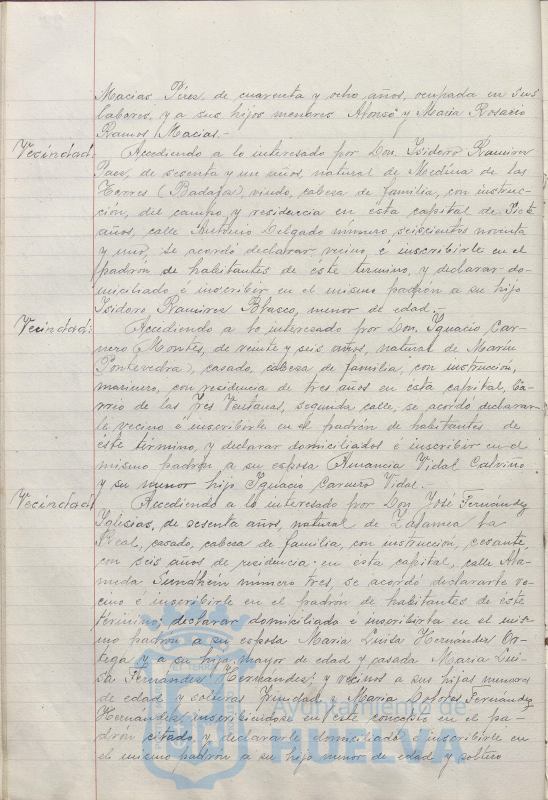 Macias Pérez, de cuarenta y ocho años, ocupada en sus
labores, y a sus hijos menores Alonso y Maria Rosario
Ramos Macias.-
Vecindad: Accediendo a lo interesado por Don Isidoro Ramirez
Paez, de sesenta y un años, natural de Medina de las
Torres (Badajoz) viudo, cabeza de familia, con instruc-
ción, del campo, y residencia en esta capital de siete
años, calle Antonio Delgado número seiscientos noventa
y uno, se acordó declarar vecino é inscribirle en el
padrón de habitantes de este termino, y declarar do-
miciliado é inscribir en el mismo padrón a su hijo
Isidoro Ramirez Blasco, menor de edad.
Vecindad: Accediendo a lo interesado por Don Ignacio Car-
nero Montes, de veinte y seis años, natural de Marin
(Pontevedra), casado, cabeza de familia, con instrucción,
marinero, con residencia de tres años en esta capital, Ba-
rrio de las Tres Ventanas, segunda calle, se acordó declarar-
le vecino é inscribirle en el padrón de habitantes de
este término, y declarar domiciliados é inscribir en el
mismo padrón a su esposa Amancia Vidal Calviño
y su menor hijo Ignacio Carnero Vidal.-
Vecindad: Accediendo a lo interesado por Don José Fernández
Iglesias, de sesenta años, natural de Zalamea la
Real, casado, cabeza de familia, con instrucción, cesante,
con seis años de residencia en esta capital, calle Ala-
meda Sundheim número tres, se acordó declararle ve-
cino é inscribirle en el padrón de habitantes de este
término; declarar domiciliada é inscribirla en el mis-
mo padrón a su esposa Maria Luisa Hernández Or-
tega y a su hija mayor de edad y casada Maria Lui-
sa Fernández Hernández; y vecinos a sus hijas menores
de edad y solteras Trinidad y Maria Dolores Fernández
Hernández, inscribiéndose en este concepto en el pa-
drón citado, y declararle domiciliado é inscribirle en
el mismo padrón a su hijo menor de edad y soltero
Ayuntamiento de
HUELVA